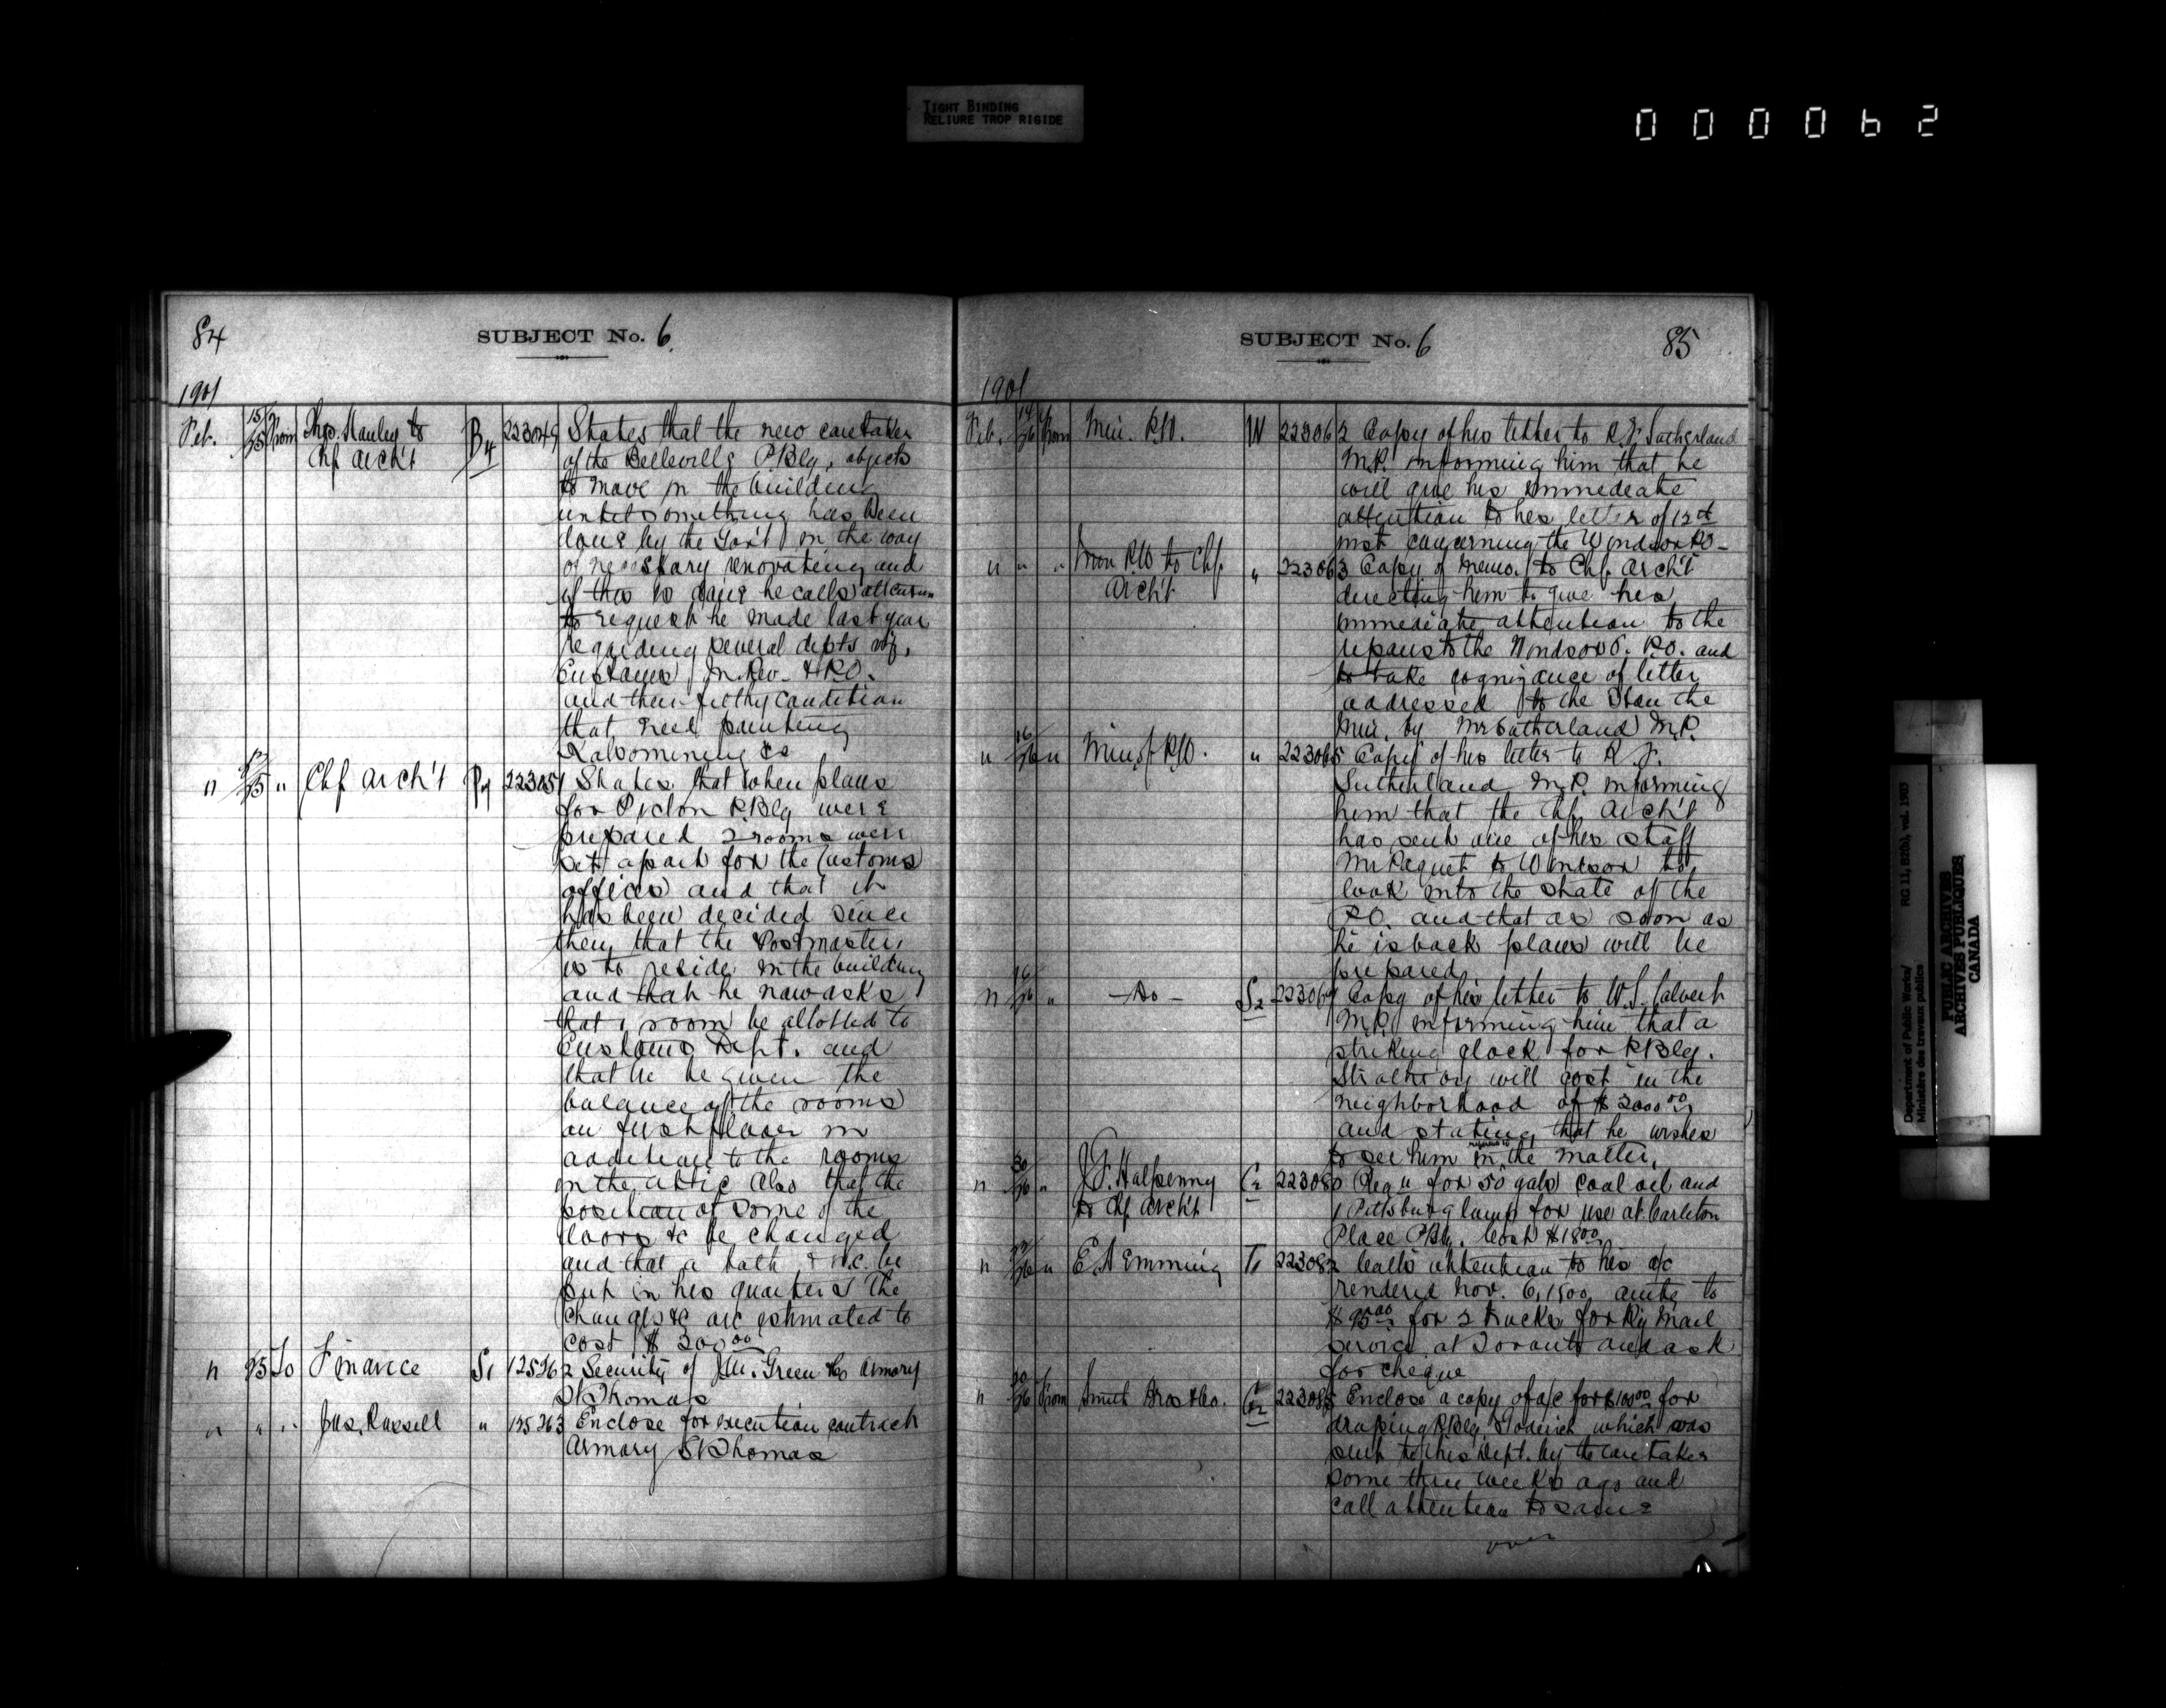 TIGHT BINDING
RELIURE TROP RIGIDE
000062
84
SUBJECT No. 6
1901
Feb. 15/25 From Thos. Hanley to Chf Arch't B4 223049 States that the new caretaker
of the Belleville P.Blg, objects
to move in the building
until something has been
done by the Gov't in the way
of necessary renovating and
if this is done he calls attention
to request he made last year
regarding several depts viz,
Customs, In. Rev. & P.O.
and their filthy condition
that need painting
Kalsomining &c
" " Chf Arch't 223051 States that when plans
for Picton P.Blg were
prepared 2 rooms were
set apart for the Customs
offices and that it
has been decided since
then that the Postmaster,
is to reside in the building
and that he now asks
that 1 room be allotted to
Customs Dept. and
that he be given the
balance of the rooms
on first floor in
addition to the rooms
in the attic Also that the
position of some of the
doors &c be changed
and that a bath & W.C. be
put in his quarters The
changes &c are estimated to
cost $ 300 00
" 25 To Finance S1 125262 Security of J.M. Green Armory
St Thomas
" " " Jas. Russell " 125263 Enclose for execution contract
Armory St Thomas
SUBJECT No. 6
85
1901
Feb. 14/26 From Min. P.W. W 223062 Copy of his letter to R.F. Sutherland
M.P. informing him that he
will give his immediate
attention to his letter of 12th
inst concerning the Windsor P.O.
" " " Min P.W to Chf. Arch't " 223063 Copy of memo. to Chf. Arch't
directing him to give his
immediate attention to the
repairs to the Windsor O. P.O. and
to take cognizance of letter
addressed to the Hon the
Min. by Mr Sutherland M.P.
" 16/26 " Min of P.W. " 223065 Copy of his letter to R.F.
Sutherland M.P. informing
him that the Chf. Arch't
has sent one of his staff
Mr Paquet to Windsor to
look into the state of the
P.O. and that as soon as
he is back plans will be
prepared.
" 16/26 " - Do - S2 223069 Copy of his letter to W.S. Calvert
M.P. informing him that a
striking clock for P.Blg.
Strathroy will cost in the
neighborhood of $ 2000 00
and stating that he wishes
to see him in the matter.
" " J.F. Halpenny to Chf Arch't C2 223080 Req'n for 50 gals coal oil and
1 Pittsburg lamp for use at Carleton
Place P.Blg. Cost $18 00
" " E. A Emming T1 223082 Calls attention to his a/c
rendered Nov. 6, 1900 amtg to
$ 95 00 for 2 trucks for Ry Mail
service at Toronto and ask
for cheque
" 20/26 From Smith Bros & Co. 223085 Enclose a copy of a/c for $100 00 for
draping P.Blg. Goderich which was
sent to this Dept. by the caretaker
some three weeks ago and
call attention to same
over
Department of Public Works/ RG 11, B2(b), vol. 1903
Ministère des travaux publics
PUBLIC ARCHIVES
ARCHIVES PUBLIQUES
CANADA